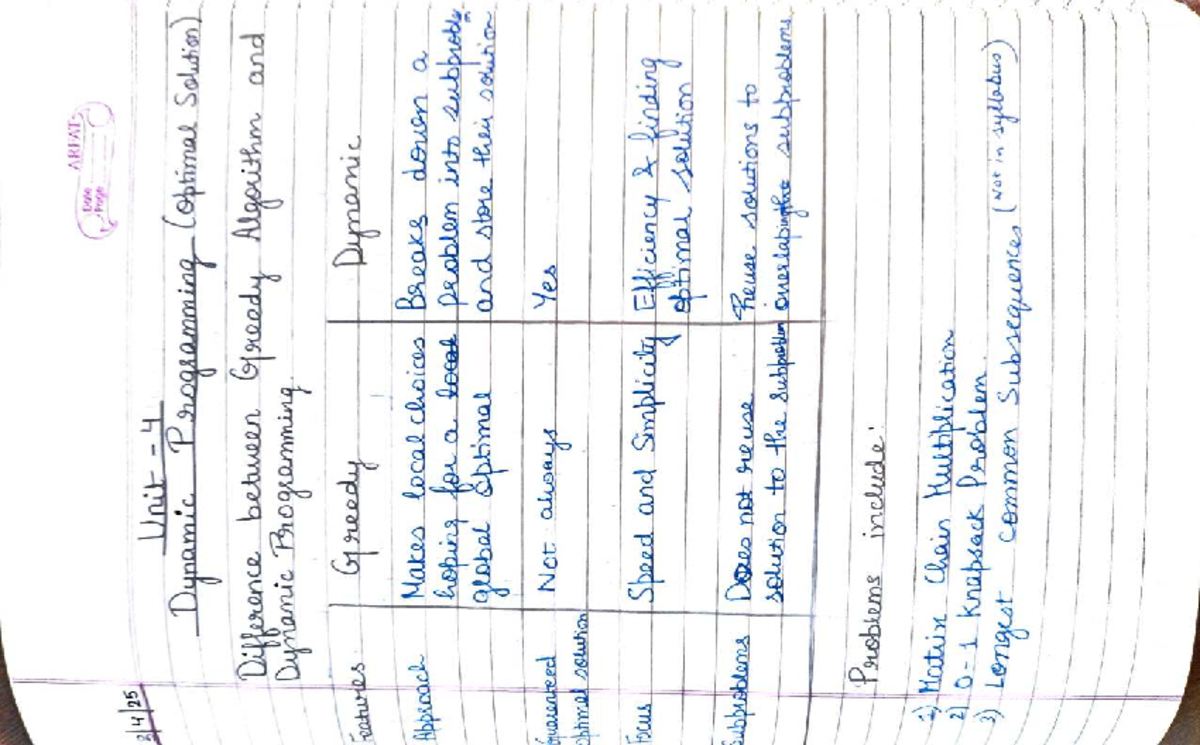 ARFAT
Date
Page
8/4/25
Unit - 4
Dynamic Programming (Optimal Solution)
Difference between Greedy Algorithm and
Dynamic Programming
Features Greedy Dynamic
Approach Makes local choices Breaks down a
hoping for a global optimal problem into subproblem
and store their solution
Guaranteed Not always Yes
optimal solution
Focus Speed and Simplicity Efficiency & finding
optimal solution
Subproblems Does not reuse Reuse solutions to
solution to the subproblem overlaping subproblems
Problems include:
1) Matrix Chain Multiplication
2) 0-1 Knapsack Problem
3) Longest common Subsequences (Not in syllabus)